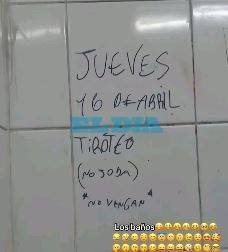 JUEVES
16 DE ABRIL
EL DIA
TIROTEO
(NO JODA)
* NO VENGAN *
Los baños